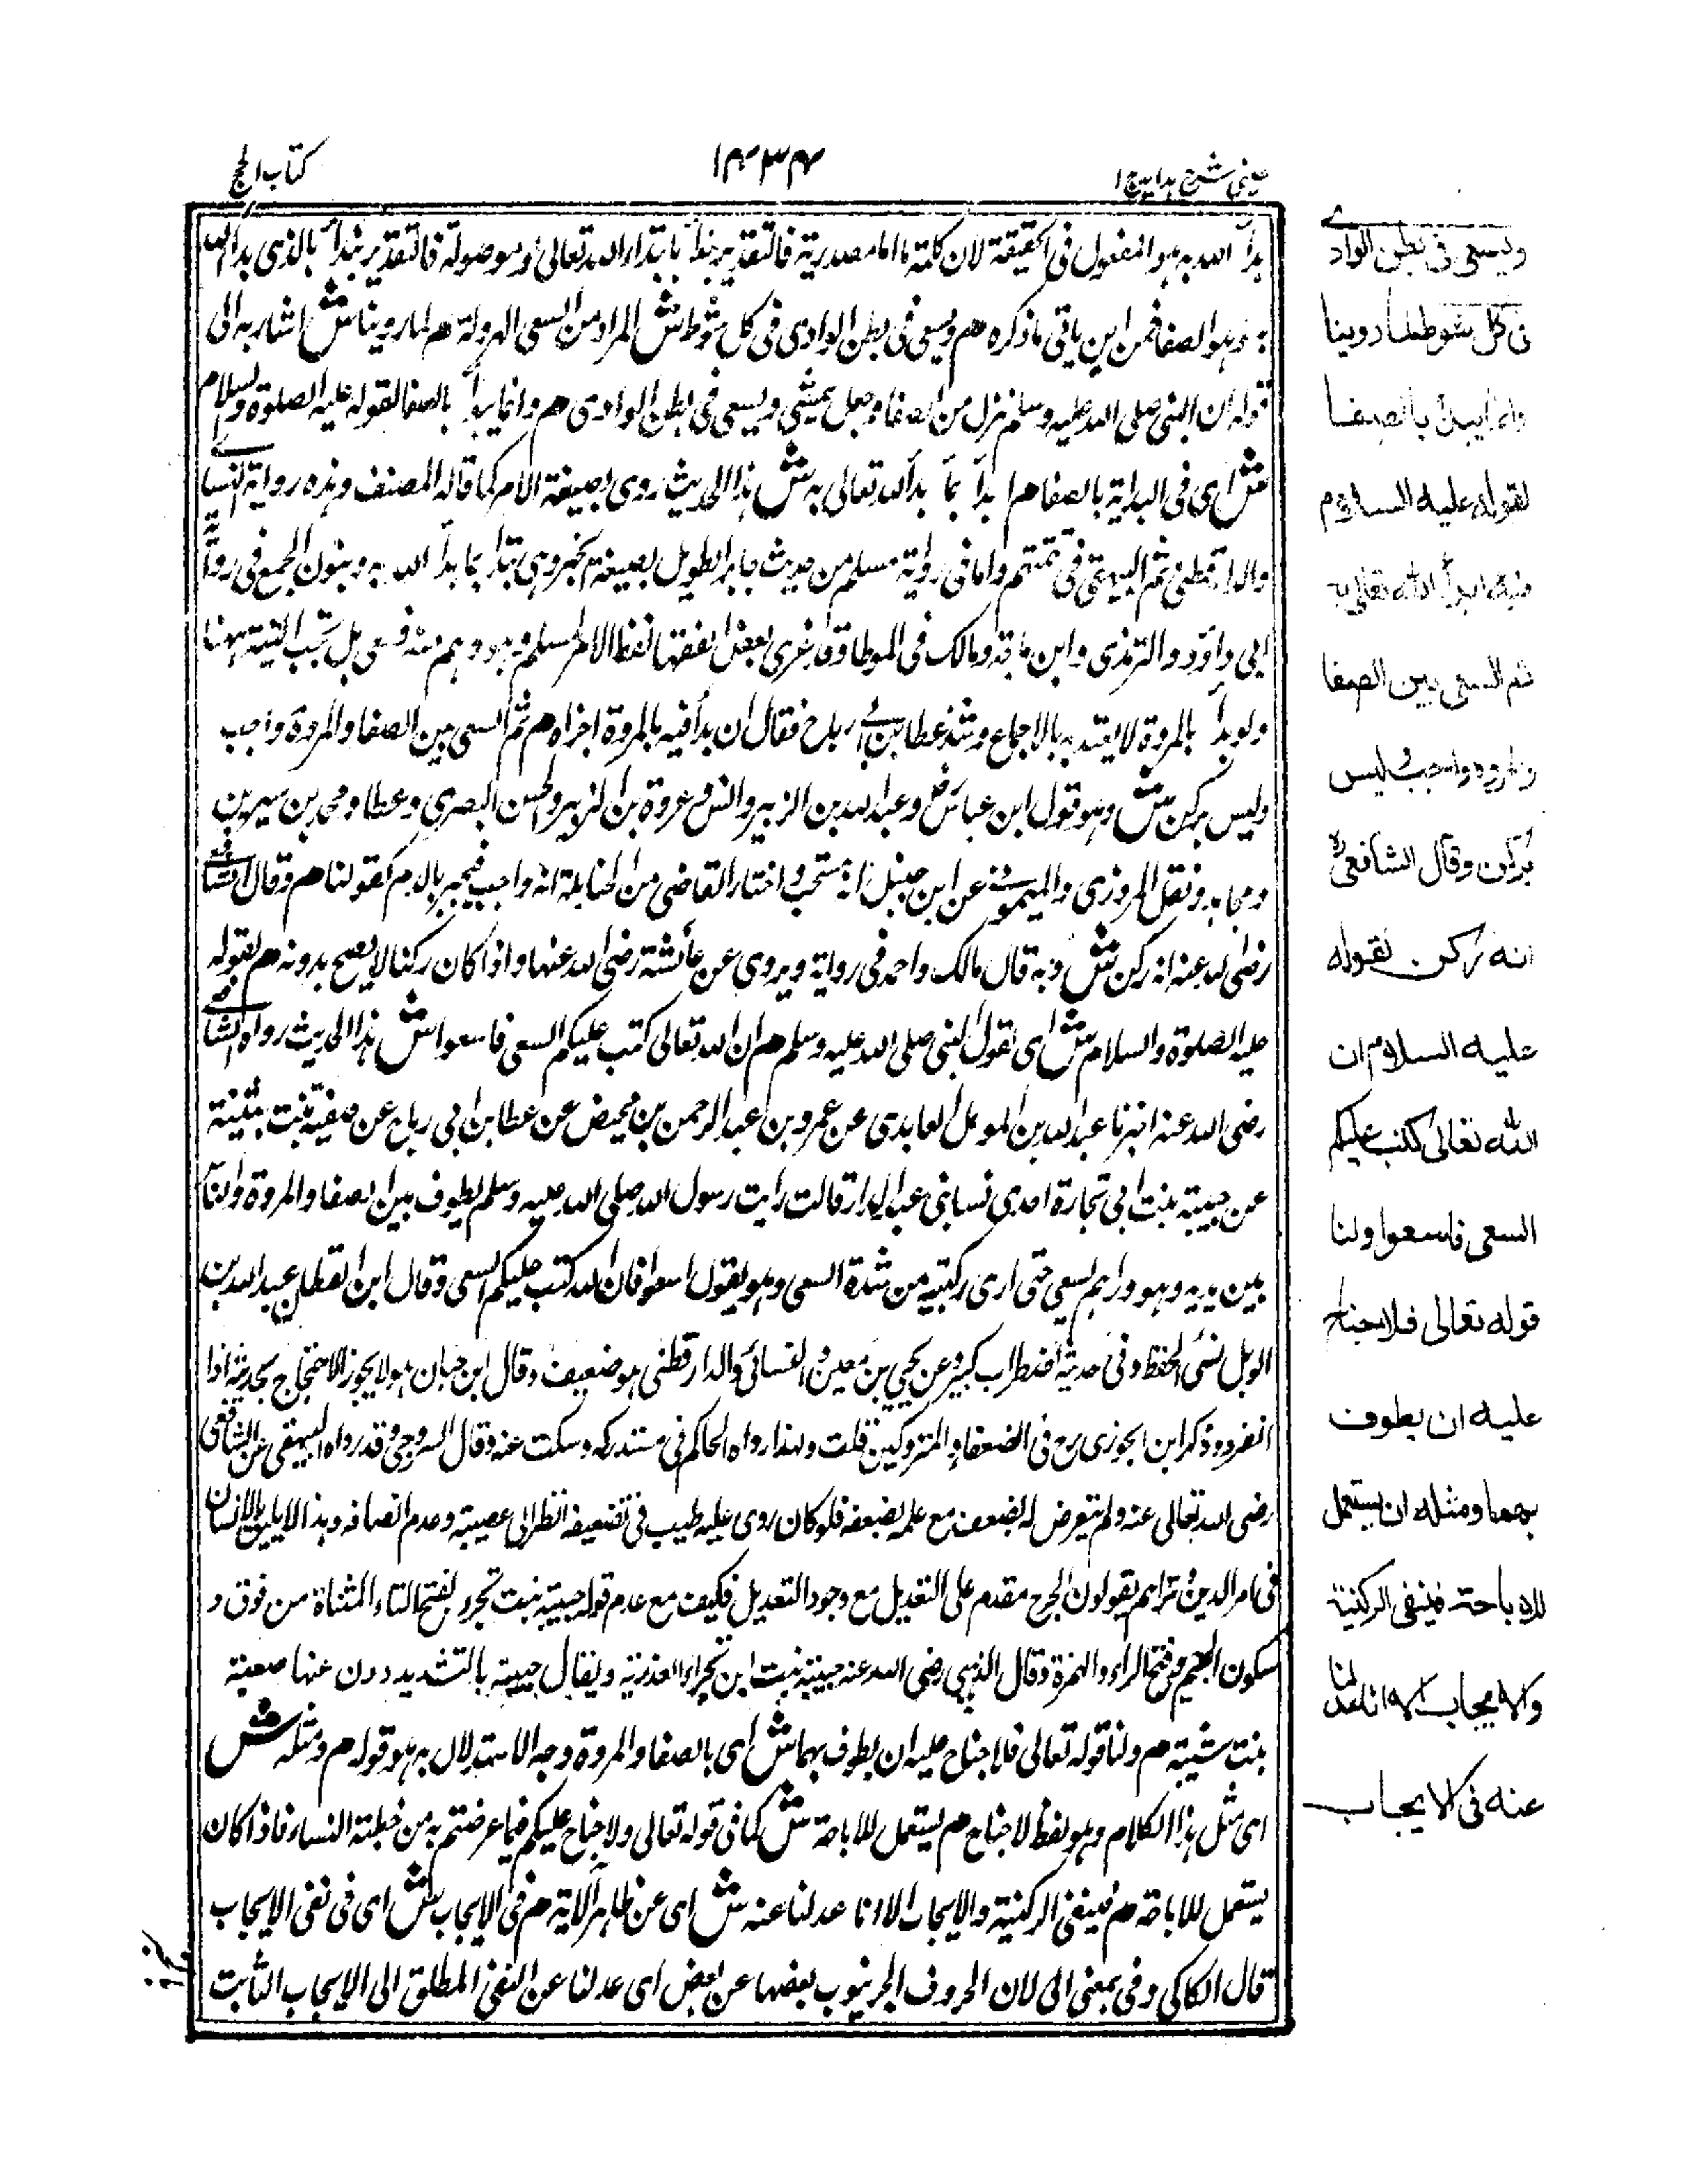 عيني شرح هدايه ج ١
١٤٣٤
كتاب الحج
بدأ الله به هو المفعول في الحقيقة لان كلمة ما اما مصدرية فالتقدير نبدأ بابتداء الله تعالى او موصولة فالتقدير نبدأ بالذي بدأ الله
به وهو الصفا فمن اين ياتي ما ذكره هم ويسعى في بطن الوادي في كل شوط ش المراد من السعي الهرولة هم لما روينا ش اشار به الى
قوله ان النبي صلى الله عليه وسلم نزل من الصفا وجعل يمشي ويسعى في بطن الوادي هم وانما يبدأ بالصفا لقوله عليه الصلوة والسلام
ش اي في البداية بالصفا هم ابدأ بما بدأ الله تعالى به ش هذا الحديث روي بصيغة الامر كما قاله المصنف وهذه رواية النسائي
والدارقطني ثم البيهقي في واما في رواية مسلم من حديث جابر الطويل بصيغة الخبر وهي نبدأ بما بدأ الله به وبنون الجمع في رواية
ابي داؤد والترمذي وابن ماجة ومالك في الموطا وقد عزى بعض الفقها لفظ الامر لمسلم وهو وهم منه
ولو بدأ بالمروة لا يعتد به بالاجماع وشذ عطا بن ابي رباح فقال ان بدأ فيه بالمروة اجزاه هم ثم السعي بين الصفا والمروة واجب
وليس بركن ش وهو قول ابن عباس رض وعبد الله بن الزبير وانس وعروة بن الزبير والحسن البصري وعطا ومحمد بن سيرين
ومجاهد ونقل المروزي والميموني عن ابن حنبل انه مستحب واختار القاضي من الحنابلة انه واجب فيجبر بالدم كقولنا هم وقال الشافعي
رضي الله عنه انه ركن ش وبه قال مالك واحمد في رواية ويروى عن عائشة رضي الله عنها واذا كان ركنا لا يصح بدونه هم لقوله
عليه الصلوة والسلام ش اي لقول النبي صلى الله عليه وسلم هم ان الله تعالى كتب عليكم السعي فاسعوا ش هذا الحديث رواه الشافعي
رضي الله عنه اخبرنا عبد الله بن المومل العابدي عن عمرو بن عبد الرحمن بن محيض عن عطا بن ابي رباح عن صفية بنت شيبة
عن حبيبة بنت ابي تجارة احدى نسا بني عبد الدار قالت رايت رسول الله صلى الله عليه وسلم يطوف بين الصفا والمروة والناس
بين يديه وهو وراهم يسعى حتى ارى ركبتيه من شدة السعي وهو يقول اسعوا فان الله كتب عليكم السعي وقال ابن القطان عبد الله بن
المومل سئ الحفظ وفي حديثه اضطراب كبير وعن يحيى بن معين والنسائي والدارقطني هو ضعيف وقال ابن حبان هو لا يجوز الاحتجاج بحديثه اذا
انفرد وذكر ابن الجوزي رح في الضعفاء والمتروكين قلت ولهذا رواه الحاكم في مستدركه وسكت عنه وقال السروجي وقد رواه البيهقي عن الشافعي
رضي الله تعالى عنه ولم يتعرض له بضعف مع علمه بضعفه فلو كان روي عليه طيب في تضعيفه انظر الى عصبيته وعدم انصافه وهذا لا يليق بالانسان
في امر الدين تراهم يقولون الجرح مقدم على التعديل مع وجود التعديل فكيف مع عدم قوله حبيبة بنت تجرء بفتح التاء المثناة من فوق و
سكون الجيم وفتح الراء والهمزة وقال الذهبي رضي الله عنه حبيبة بنت ابن تجراء العبدرية ويقال حبيبة بالتشديد روت عنها صفية
بنت شيبة هم ولنا قوله تعالى فلا جناح عليه ان يطوف بهما ش اي بالصفا والمروة وجه الاستدلال به هو قوله هم ومثله ش
اي مثل هذا الكلام وهو لفظ لا جناح هم يستعمل للاباحة ش كما في قوله تعالى ولا جناح عليكم فيما عرضتم به من خطبة النساء فاذا كان
يستعمل للاباحة هم فينفي الركنية والايجاب الا انا عدلنا عنه ش اي عن ظاهر الآية هم في الايجاب ش اي في نفي الايجاب
قال الكاكي وفي بمعنى الى لان الحروف الجر ينوب بعضها عن بعض اي عدلنا عن النفي المطلق الى الايجاب الثابت
ويسعى في بطن الوادي
في كل شوط لما روينا
وانما يبدأ بالصفا
لقوله عليه السلام
ابدأ الله تعالى به
ثم السعي بين الصفا
والمروة واجب وليس
بركن وقال الشافعي ره
انه ركن لقوله
عليه السلام ان
الله تعالى كتب عليكم
السعي فاسعوا ولنا
قوله تعالى فلا جناح
عليه ان يطوف
بهما ومثله ان يستعمل
للاباحة فينفي الركنية
والايجاب الا انا عدلنا
عنه في الايجاب